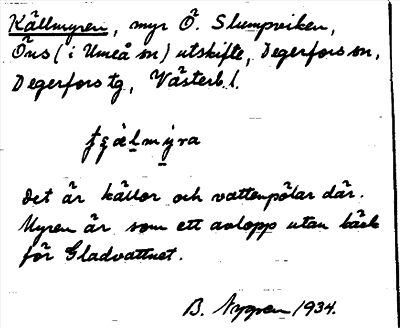 Källmyren, myr Ö. Slumpviken,
Öns (i Umeå sn) utskifte, Degerfors sn,
Degerfors tg, Västerb. l.
Det är källor och vattenpölar där.
Myren är som ett avlopp utan bäck
för Gladvattnet.
B. Nygren 1934.